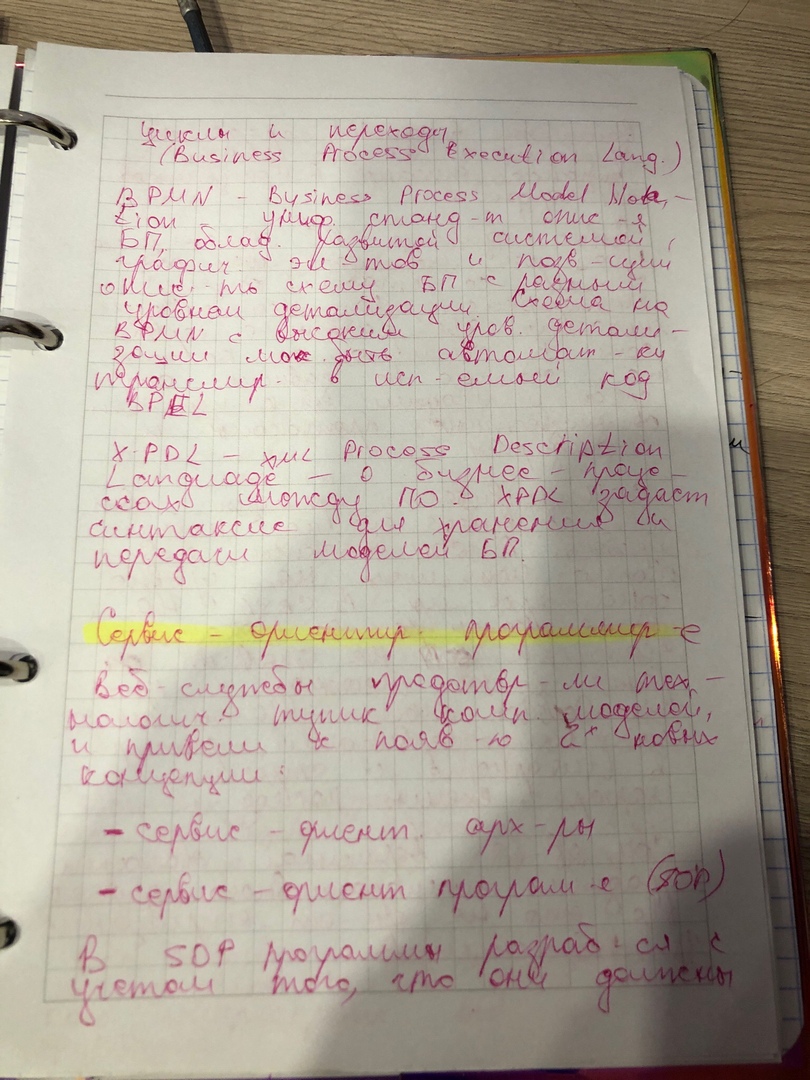 циклы и переходы
(Business Process Execution Lang.)
BPMN - Business Process Model Nota-
tion - униф. станд-т опис-я
БП, облад. развитой системой
графич. эл-тов и позв-щий
опис-ть схему БП с разным
уровнем детализации. Схема на
BPMN с высоким уров. детали-
зации мож. быть автомат-ки
транслир. в исп-емый код
BPEL
XPDL - XML Process Description
Language - о бизнес-проце-
ссах между ПО. XPDL задаст
синтаксис для хранения и
передачи моделей БП.
Сервис - ориентир. программир-е
Веб-службы предотвр-ли тех-
нологич. тупик комп. моделей,
и привели к появ-ю 2х новых
концепции:
- сервис - ориент. арх-ры
- сервис - ориент програм-е (SOP)
В SOP программы разраб-ся с
учетом того, что они должны